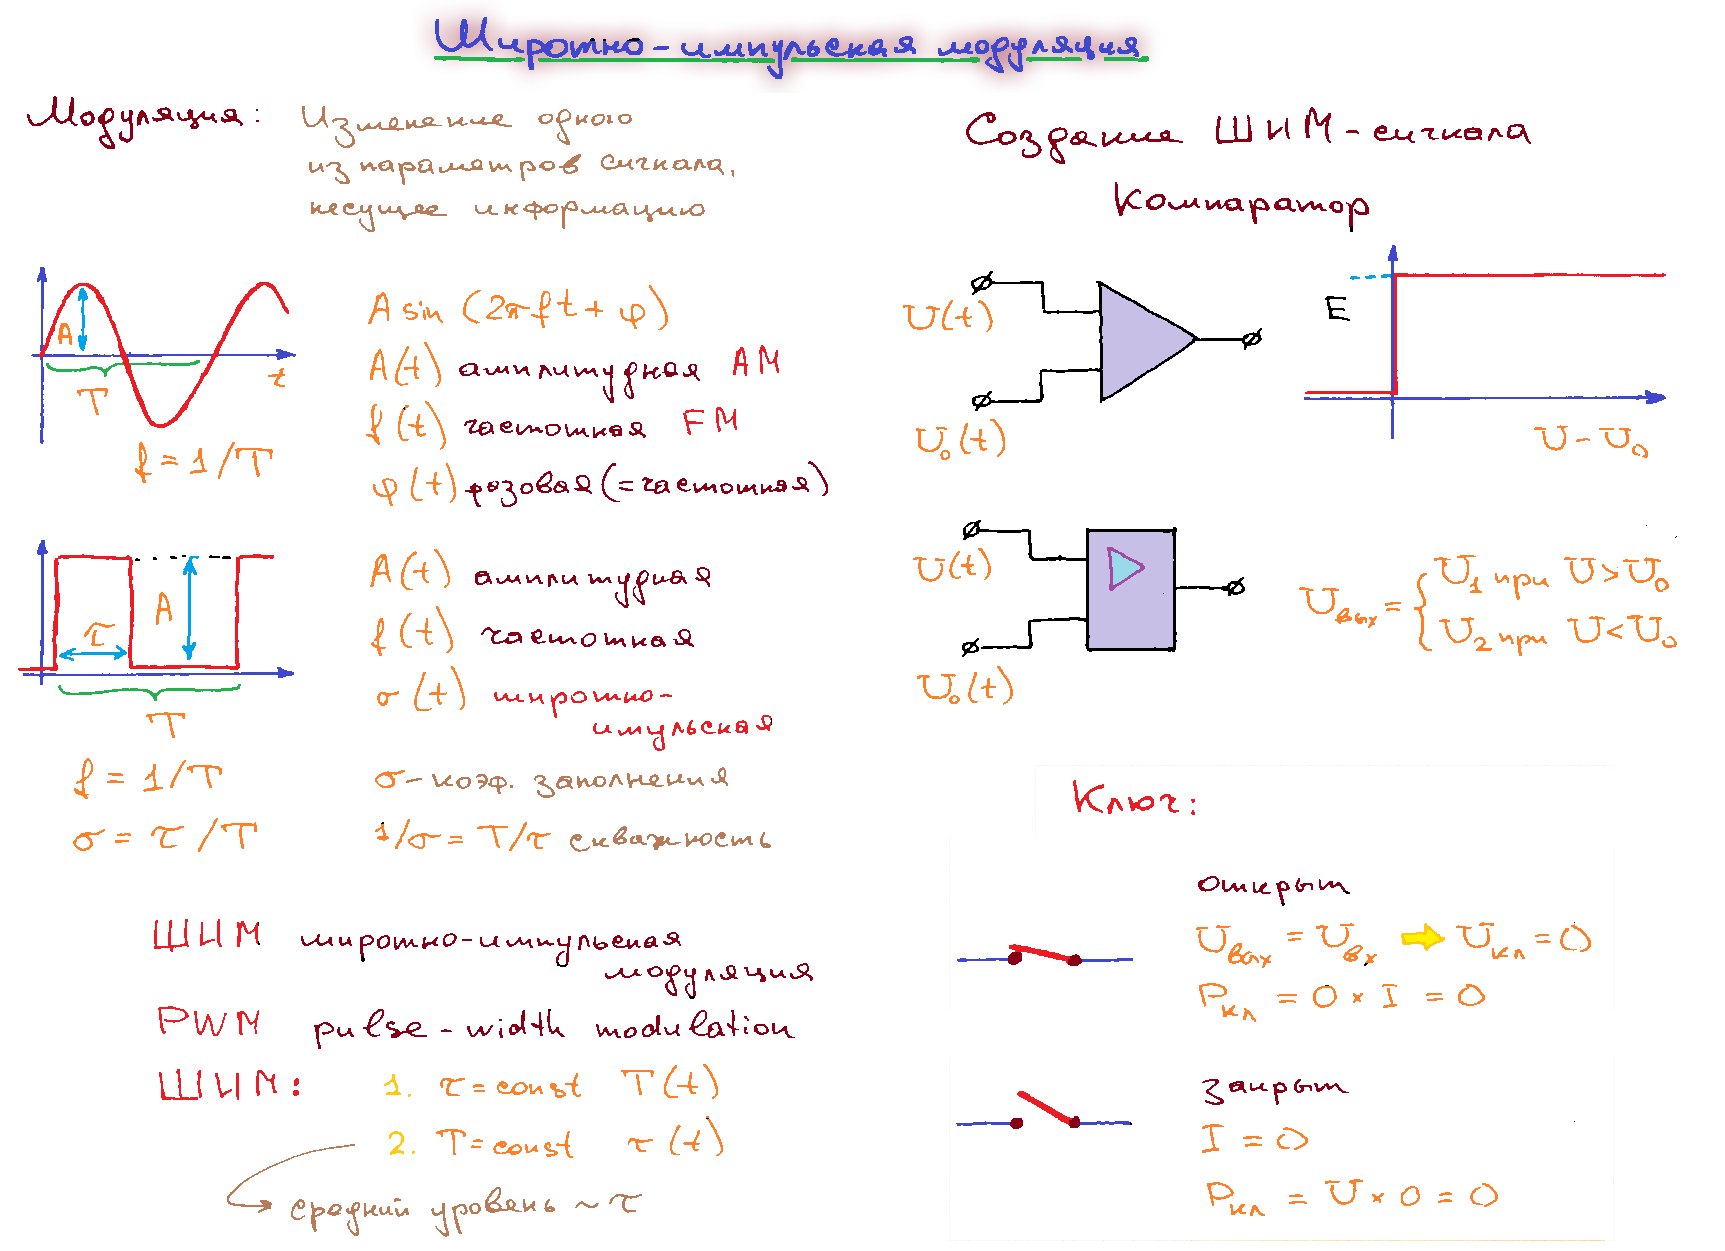 Широтно-импульсная модуляция
Модуляция: Изменение одного
из параметров сигнала,
несущее информацию
A
T
t
f = 1/T
A sin (2πft + φ)
A(t) амплитудная AM
f(t) частотная FM
φ(t) фазовая (=частотная)
A
τ
T
f = 1/T
σ = τ/T
A(t) амплитудная
f(t) частотная
σ(t) широтно-
имульсная
σ - коэф. заполнения
1/σ = T/τ скважность
ШИМ широтно-импульсная
модуляция
PWM pulse-width modulation
ШИМ: 1. τ = const T(t)
2. T = const τ(t)
средний уровень ~ τ
Создание ШИМ-сигнала
Компаратор
U(t)
U₀(t)
E
U - U₀
U(t)
U₀(t)
Uвых = { U₁ при U > U₀
U₂ при U < U₀
Ключ:
открыт
Uвых = Uвх ➡ Uкл = 0
Pкл = 0 × I = 0
закрыт
I = 0
Pкл = U × 0 = 0